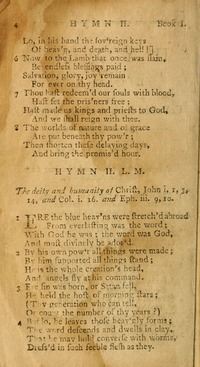 4 HYMN II. Book I.
Lo, in his hand the sov'reign keys
Of heav'n, and death, and hell!]
6 Now to the Lamb that once was slain,
Be endless blessings paid;
Salvation, glory, joy remain
For ever on thy head.
7 Thou hast redeem'd our souls with blood,
Hast set the pris'ners free;
Hast made us kings and priests to God,
And we shall reign with thee.
8 The worlds of nature and of grace
Are put beneath thy pow'r;
Then shorten these delaying days,
And bring the promis'd hour.
HYMN II. L. M.
The deity and humanity of Christ, John i. 1, 3,
14, and Col. i. 16. and Eph. iii. 9, 10.
1 ERE the blue heav'ns were stretch'd abroad
From everlasting was the word;
With God he was; the word was God,
And must divinely be ador'd.
2 By his own pow'r all things were made;
By him supported all things stand;
He is the whole creation's head,
And angels fly at his command.
3 Ere sin was born, or Satan fell,
He led the host of morning stars;
(Thy generation who can tell,
Or count the number of thy years?)
4 But lo, he leaves those heav'nly forms;
The word descends and dwells in clay,
That he may hold converse with worms,
Dress'd in such feeble flesh as they.